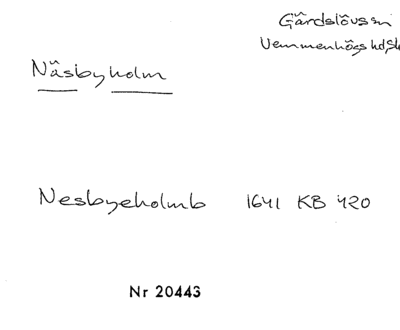 Gårdslövssn
Vemmenhögs hd, Sk
Näsbyholm
Nesbyeholmb 1641 KB 420
Nr 20443